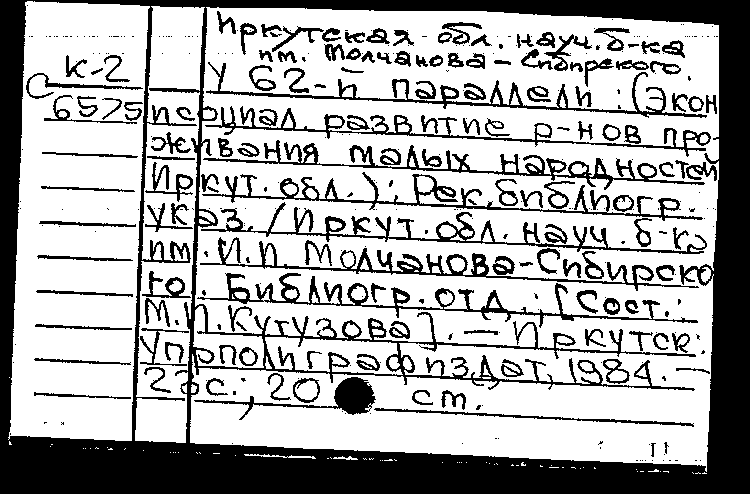 Иркутская обл. науч. б-ка
им. Молчанова-Сибирского.
К-2
У 62-й параллели : (Экон
С
6575
и социал. развитие р-нов про-
живания малых народностей
Иркут. обл.) : Рек. библиогр.
указ. / Иркут. обл. науч. б-ка
им. И.И. Молчанова-Сибирско
го. Библиогр. отд.; [Сост.:
М.И. Кутузова]. — Иркутск:
Упрполиграфиздат, 1984. —
23с.; 20 см.